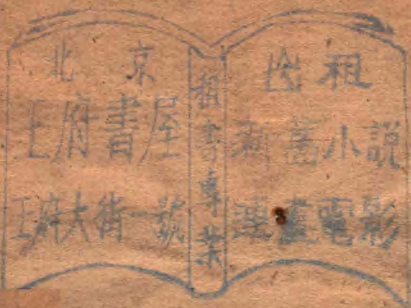 北京
王府書屋
王府大街一號
租書專業
出租
新舊小説
連畫電影